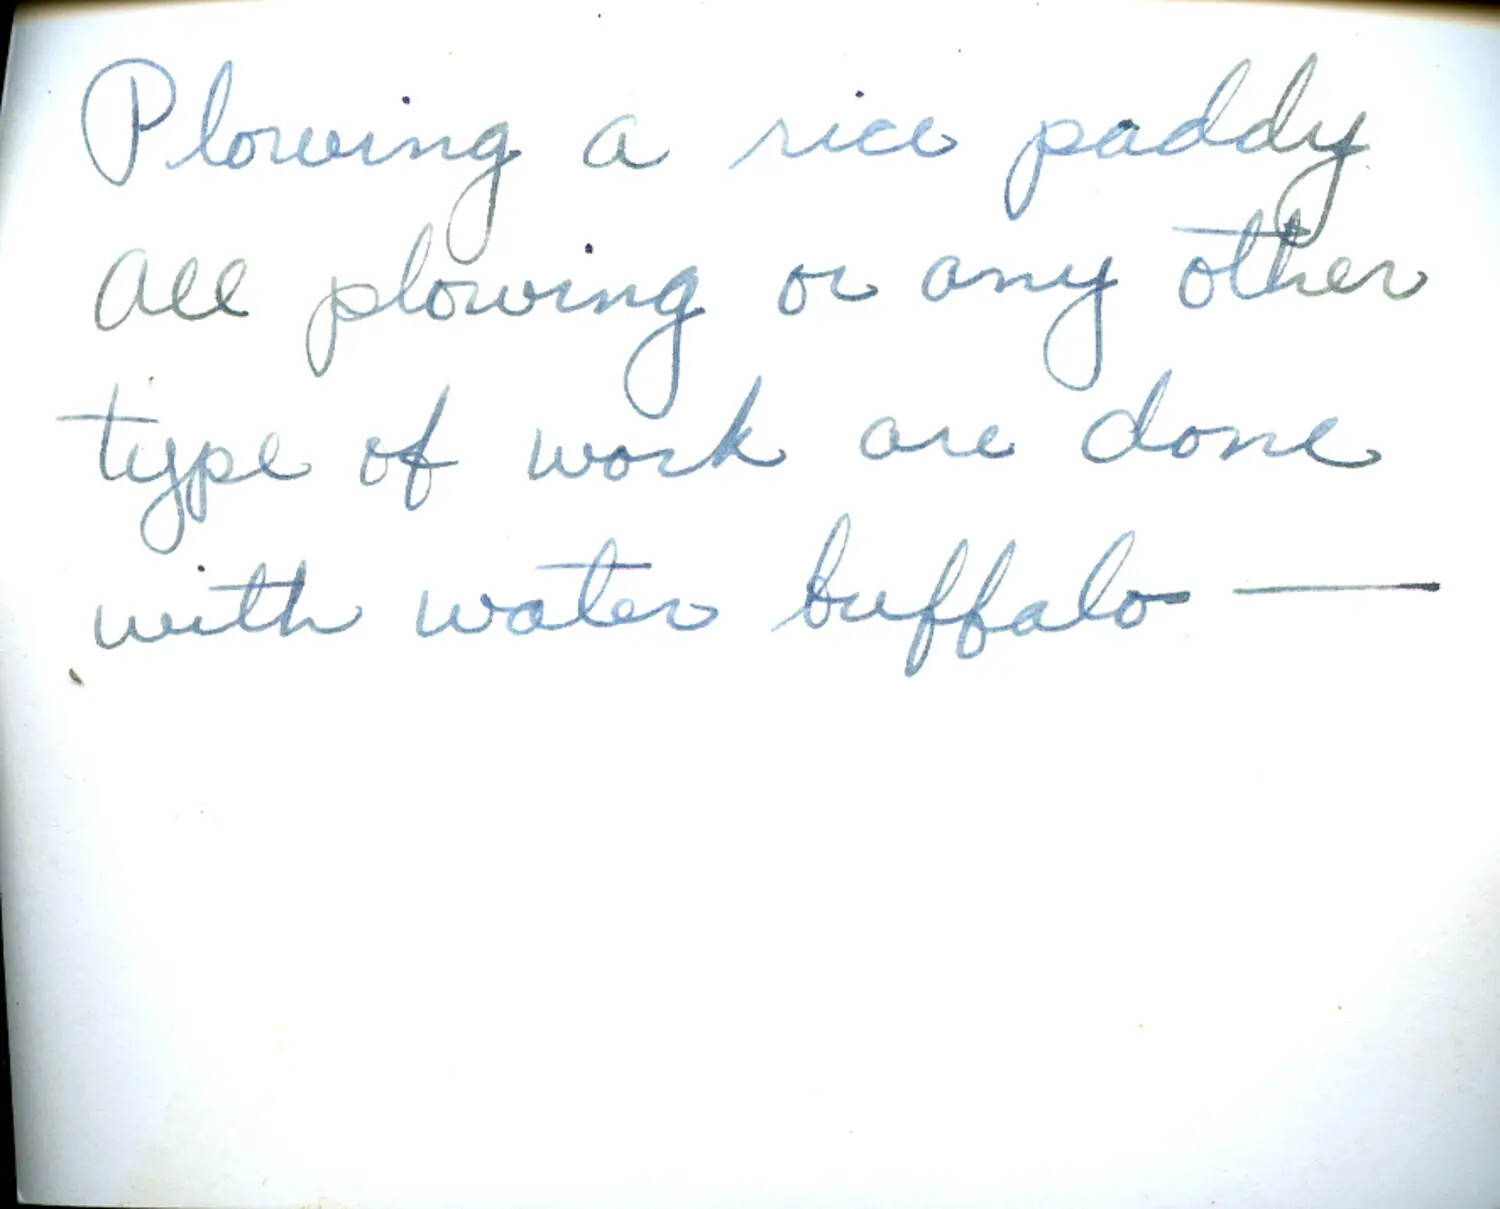 Plowing a rice paddy
All plowing or any other
type of work are done
with water buffalo —